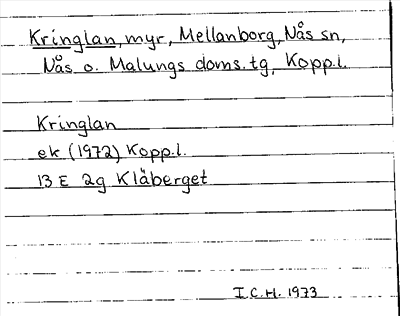 Kringlan, myr, Mellanborg, Nås sn,
Nås o. Malungs doms. tg, Kopp.l.
Kringlan
ek (1972) Kopp.l.
13 E 2g Klåberget
I.C.H. 1973